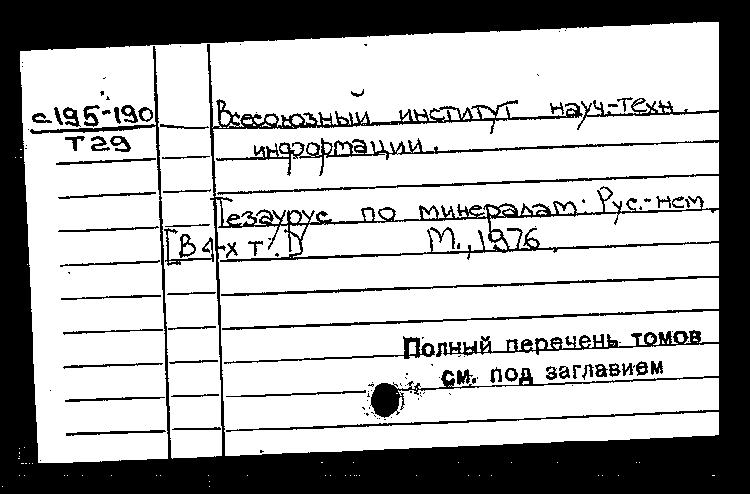 с195-190
Т29
Всесоюзный институт науч.-техн.
информации.
Тезаурус по минералам: Рус.-нем.
[В 4-х т.]
М., 1976.
Полный перечень томов
см. под заглавием